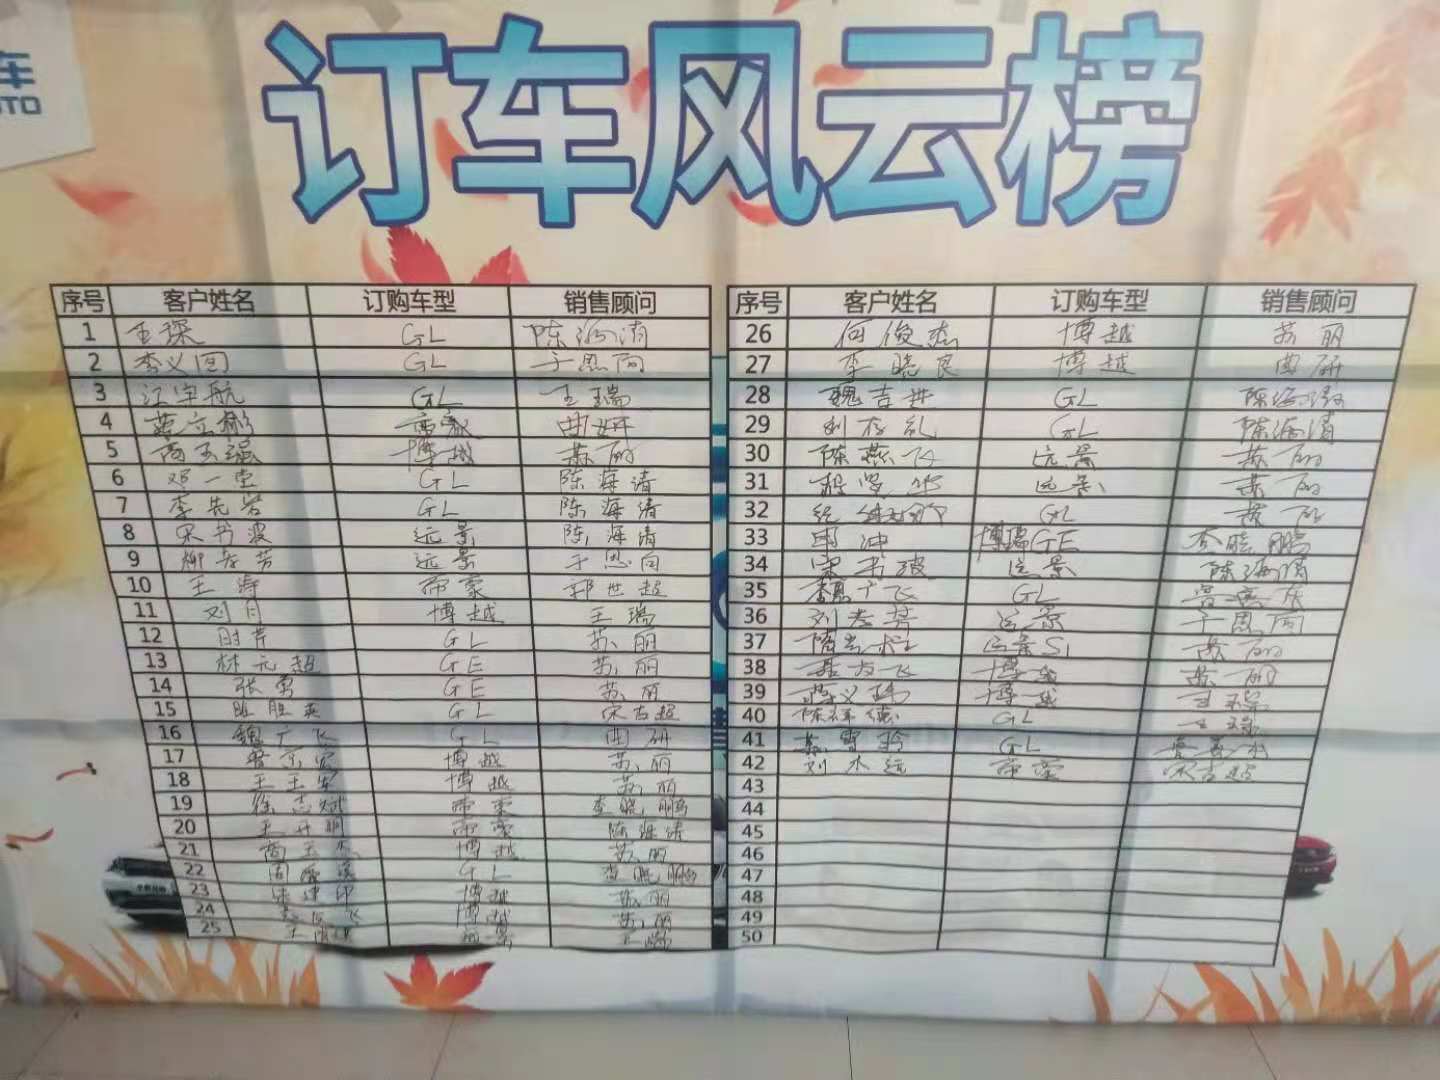 车
UTO
订车风云榜
序号 客户姓名 订购车型 销售顾问
1 王琛 GL 陈海清
2 李义回 GL 于恩同
3 江宇航 GL 王瑞
4 GL 曲妍
5 商玉强 博越 苏丽
6 邓一堂 GL 陈海清
7 李先岩 GL 陈海清
8 宋书波 远景 陈海清
9 柳孝芳 远景 于恩同
10 王涛 帝豪 郭世超
11 刘月 博越 王瑞
12 时芹 GL 苏丽
13 林元超 GE 苏丽
14 张勇 GE 苏丽
15 胜英 GL 宋吉超
16 魏广飞 GL 曲研
17 博越 苏丽
18 王玉军 博越 苏丽
19 徐志斌 帝豪 李晓鹏
20 王开明 帝豪 陈海清
21 商玉杰 博越 苏丽
22 GL 李晓鹏
23 朱建印 博越 苏丽
24 飞 博越 苏丽
25 王 远景 王瑞
序号 客户姓名 订购车型 销售顾问
26 何俊杰 博越 苏丽
27 李晓良 博越 曲研
28 魏吉进 GL 陈海清
29 刘存礼 GL 陈海清
30 陈燕飞 远景 苏丽
31 远景 苏丽
32 纪 GL 苏丽
33 周冲 博瑞GE 李晓鹏
34 宋书波 远景 陈海清
35 广飞 GL
36 刘孝芳 远景 于恩同
37 远景S1 苏丽
38 友飞 博越 苏丽
39 义 博越 王瑞
40 陈祥德 GL 王瑞
41 苏雪玲 GL
42 刘木远 帝豪 宋吉超
43
44
45
46
47
48
49
50